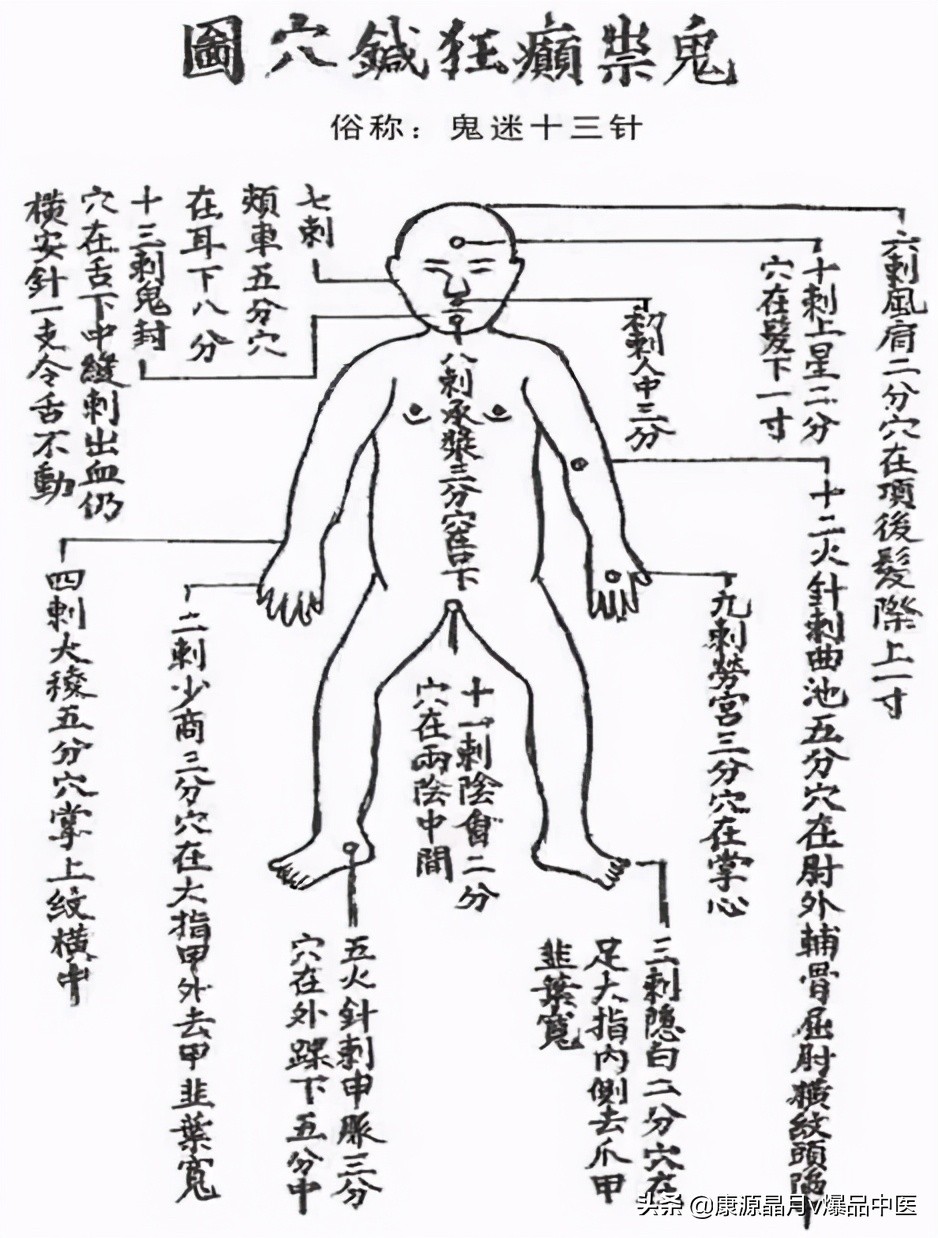 鬼祟癲狂鍼穴圖
俗称：鬼迷十三针
六刺風府二分穴在項後髮際上一寸
十刺上星二分
穴在髮下一寸
初刺人中三分
七刺
頰車五分穴
在耳下八分
十三刺鬼封
穴在舌下中縫刺出血仍
橫安針一支令舌不動
八刺承漿三分穴
下
十二火針刺曲池五分穴在肘外輔骨屈肘橫紋頭陷中
九刺勞宮三分穴在掌心
四刺大稜五分穴掌上紋橫中
二刺少商三分穴在大指甲外去甲韭葉寬
十一刺陰會二分
穴在兩陰中間
三刺隐白二分穴在
足大指內側去爪甲
韭葉寬
五火針刺申脈三分
穴在外踝下五分中
头条 @康源晶月v爆品中医